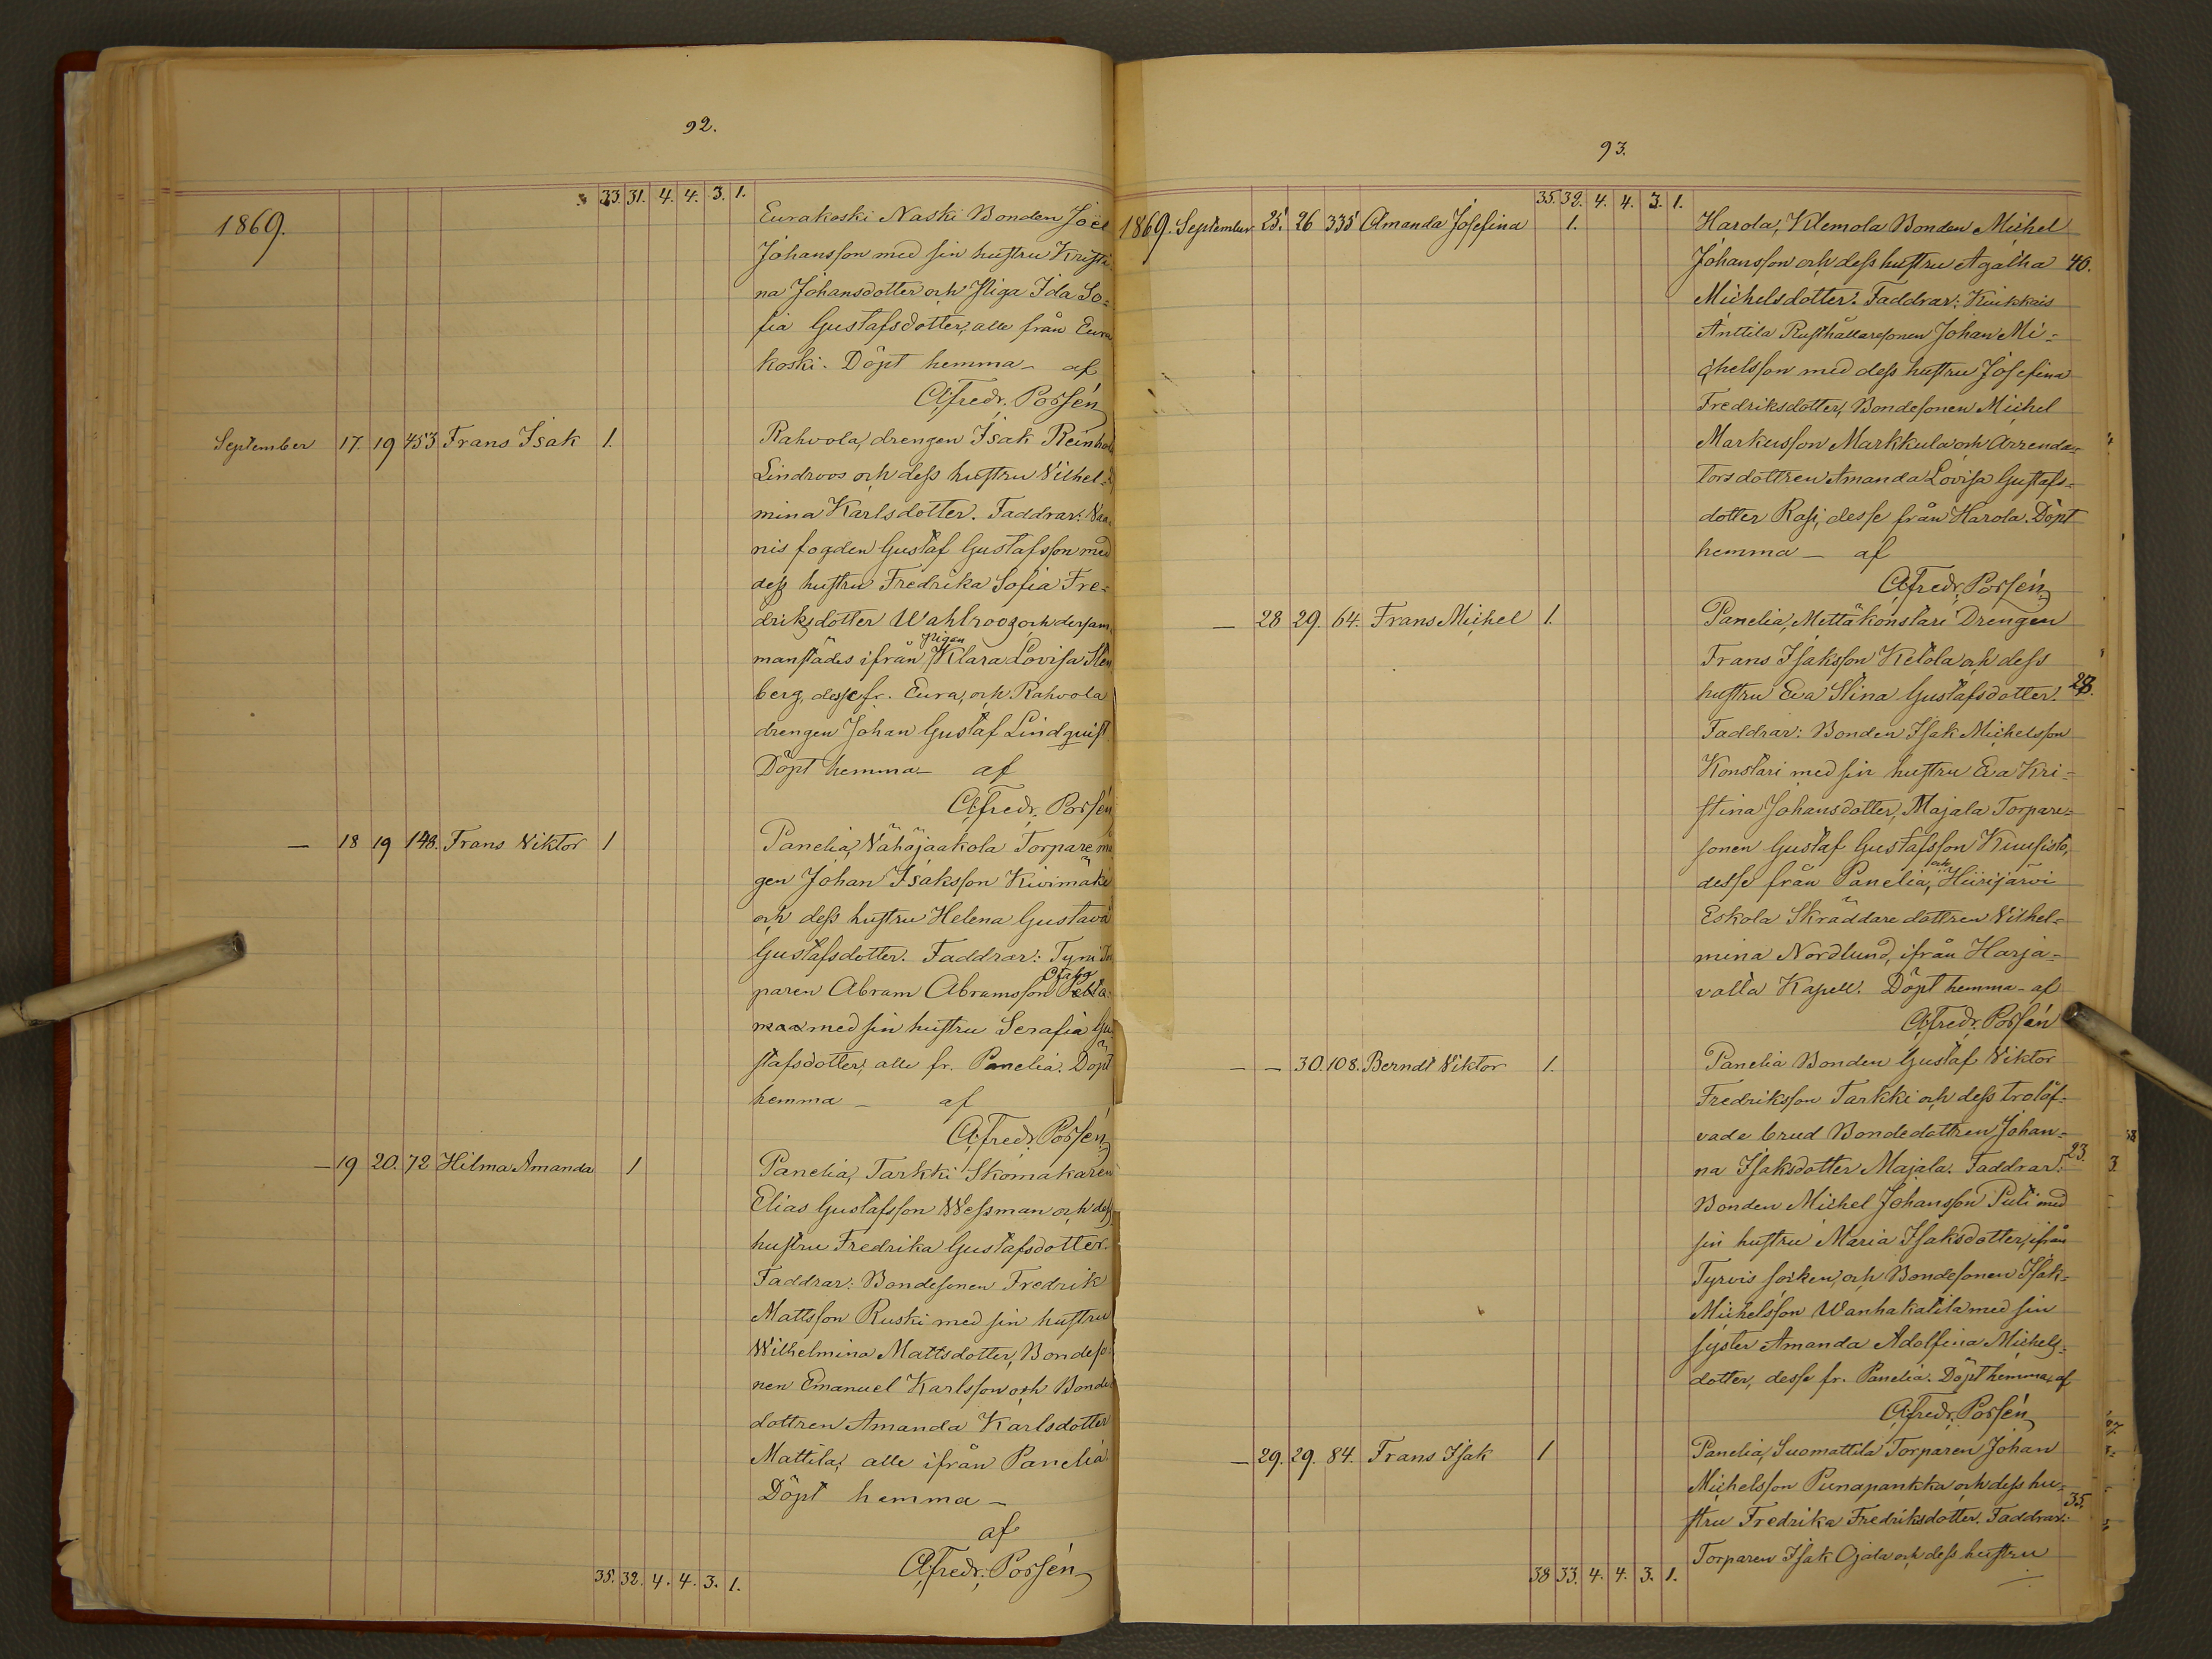 92.
33. 31. 4. 4. 3. 1.
1869.
Eurakoski Naski Bonden Joel
Johansson med sin hustru Kristi-
na Johansdotter och Piga Ida So=
fia Gustafsdotter, alle från Eura
koski. Döpt hemma – af
Alfredr. Porsén
September 17. 19 453 Frans Isak 1. Rahvola, drengen Isak Reinhold
Lindroos och dess hustru Vilhel=
mina Karlsdotter. Faddrar:
nis fogden Gustaf Gustafsson med
dess hustru Fredrika Sofia Fre=
driksdotter Wahlroos, och dersam
manstädes ifrån Pigan Klara Lovisa Sten
berg, desse fr. Eura, och Rahvola
drengen Johan Gustaf Lindquist
Döpt hemma – af
Alfredr. Porsén
– 18 19 148. Frans Viktor 1 Panelia, Vähäjaakola Torpare må
gen Johan Isaksson Kivimäki
och dess hustru Helena Gustava
Gustafsdotter. Faddrar: Tyni Tor
paren Abram Abramsson
maa med sin hustru Serafia Gu
stafsdotter, alle fr. Panelia. Döpt
hemma – af
Alfredr. Porsén
– 19 20. 72 Hilma Amanda 1 Panelia, Tarkki Skomakaren
Elias Gustafsson Wessman och dess
hustru Fredrika Gustafsdotter.
Faddrar: Bondesonen Fredrik
Mattsson Ruski med sin hustru
Wilhelmina Mattsdotter, Bondeso
nen Emanuel Karlsson och Bonde
dottren Amanda Karlsdotter
Mattila, alle ifrån Panelia
Döpt hemma –
af
Alfredr. Porsén
35. 32. 4. 4. 3. 1.
93.
35. 32. 4. 4. 3. 1.
1869. September 25. 26 335 Amanda Josefina 1. Harola, Klemola Bonden Michel
Johansson och dess hustru Agatha 40.
Michelsdotter. Faddrar: Kiukkais
Anttila Rusthållaresonen Johan Mi=
chelsson med dess hustru Josefina
Fredriksdotter, Bondesonen Michel
Markusson Markkula och Arrenda=
torsdottren Amanda Lovisa Gustafs=
dotter Rasi, desse från Harola. Döpt
hemma – af
Alfredr. Porsén
– 28 29. 64. Frans Michel 1. Panelia, Mettäkonstari Drengen
Frans Isaksson Ketola och dess
hustru Eva Stina Gustafsdotter.
Faddrar: Bonden Isak Michelsson
Konstari med sin hustru Eva Kri=
stina Johansdotter, Majala Torpare=
sonen Gustaf Gustafsson Kuusisto,
desse från Panelia, och Hiirijärvi
Eskola Skräddare dottren Vilhel=
mina Nordlund, ifrån Harja=
valta Kapell. Döpt hemma – af
Alfredr. Porsén
– – 30. 108. Berndt Viktor 1. Panelia Bonden Gustaf Viktor
Fredriksson Tarkki och dess trolof=
vade brud Bondedottren Johan=
na Isaksdotter Majala. Faddrar: 23.
Bonden Michel Johansson Puti med
sin hustru Maria Isaksdotter, ifrån
Tyrvis socken, och Bondesonen Isak
Michelsson Wanhakatila med sin
syster Amanda Adolfina Michels=
dotter, desse fr. Panelia. Döpt hemma, af
Alfredr. Porsén
– 29. 29. 84. Frans Isak 1 Panelia, Suomattila Torparen Johan
Michelsson Punapankka och dess hu= 35.
stru Fredrika Fredriksdotter. Faddrar:
Torparen Isak Ojala och dess hustru
38 33. 4. 4. 3. 1.